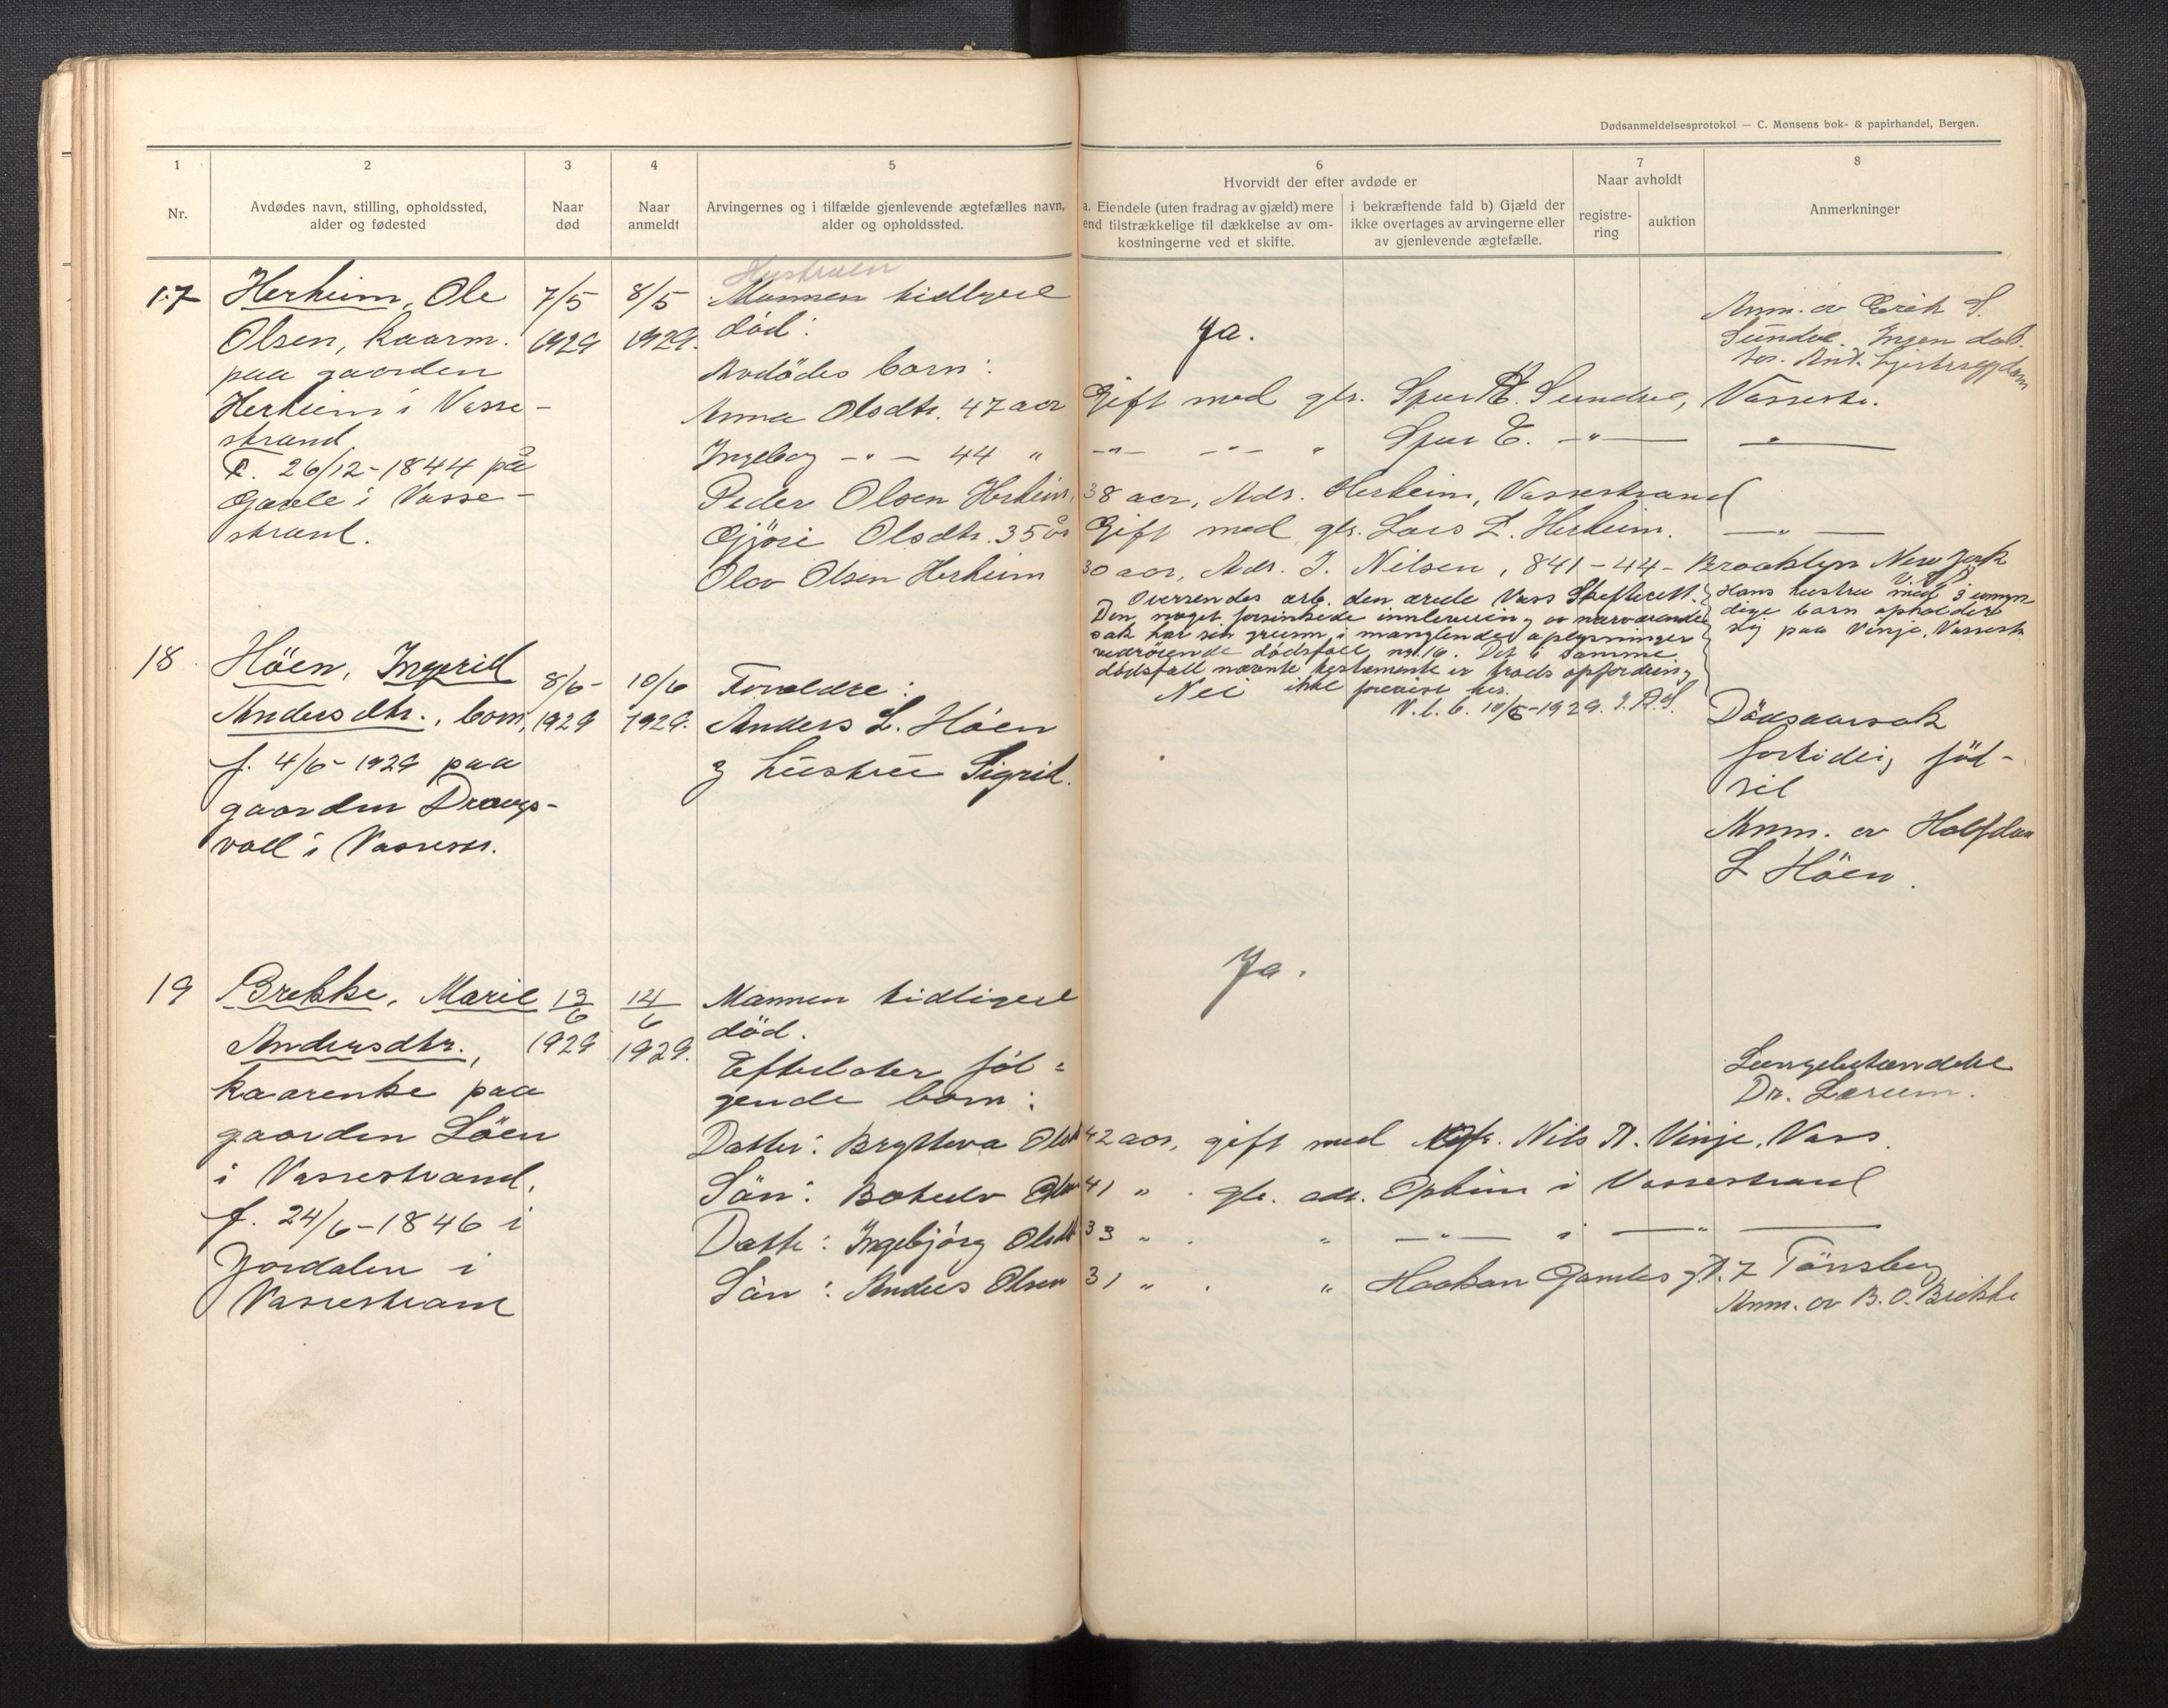 Dødsanmeldelsesprotokol — C. Monsens bok- & papirhandel, Bergen.
1
Nr.
2
Avdødes navn, stilling, opholdssted,
alder og fødested
3
Naar
død
4
Naar
anmeldt
5
Arvingernes og i tilfælde gjenlevende ægtefælles navn,
alder og opholdssted.
6
Hvorvidt der efter avdøde er
a. Eiendele (uten fradrag av gjæld) mere
end tilstrækkelige til dækkelse av om-
kostningerne ved et skifte.
i bekræftende fald b) Gjæld der
ikke overtages av arvingerne eller
av gjenlevende ægtefælle.
7
Naar avholdt
registre-
ring
auktion
8
Anmerkninger
17
Herheim, Ole
Olsen, kaarm.
paa gaarden
Herheim i Vosse-
strand.
F. 26/12-1844 på
Gjerde i Vosse-
strand.
7/5
1929
8/5
1929.
Hustruen
Mannen tidligere
död:
Avdödes born:
Anna Olsdtr. 47 aar
Ingeborg -"- 44 "
Peder Olsen Herheim,
Gjöri Olsdtr. 35 år
Olav Olsen Herheim
Ja.
Gift med gbr. Sjur A. Sundve, Vossestr.
-"- -"- " Sjur E. -"- "
38 aar, Adr. Herheim, Vossestrand
Gift med gbr. Lars L. Herheim. -"-
30 aar, Adr. J. Nilsen, 841-44- Brooklyn New York
Anm. av Erik S.
Sundve. Ingen dok-
tor. Ant. hjertesygdom
Hans hustru med 3 umyn
dige barn opholder
sig paa Vinje, Vossestr.
Oversendes ærb. den ærede Voss Skifterett.
Den noget forsinkede innlevering av nærværende
sak har sin grunn i manglende oplysninger
vedrörende dödsfall nr. 16. Det i samme
dödsfall nævnte testamente er trods opfordring
ikke forevist her.
V. l. 6. 10/6-1929.
18
Höen, Ingerid
Andersdtr., barn,
f. 4/6-1929 paa
gaarden Draugs-
voll i Vossestr.
8/6-
1929
10/6
1929.
Foreldre:
Anders L. Höen
og hustru Sigrid.
Nei
Dödsaarsak
fortidig föd-
sel
Anm. av Halfdan
L Höen.
19
Brekke, Marie
Andersdtr.,
kaarenke paa
gaarden Löen
i Vossestrand,
f. 24/6-1846 i
Jordalen i
Vossestrand
13/6
1929
14/6
1929.
Mannen tidligere
död.
Efterlater föl=
gende born:
Datter: Brytteva Olsdt
Sön: Botolv Olsen
Datter: Ingebjörg Olsdt
Sön: Anders Olsen
Ja.
42 aar, gift med gbr. Nils A. Vinje, Voss.
41 " . gbr. adr. Opheim i Vossestrand
33 " . " -"- i -"-
31 " . " Haakon Gamles gt. 7 Tönsberg
Lungebetændelse
Dr. Lærum.
Anm. av B. O. Brekke